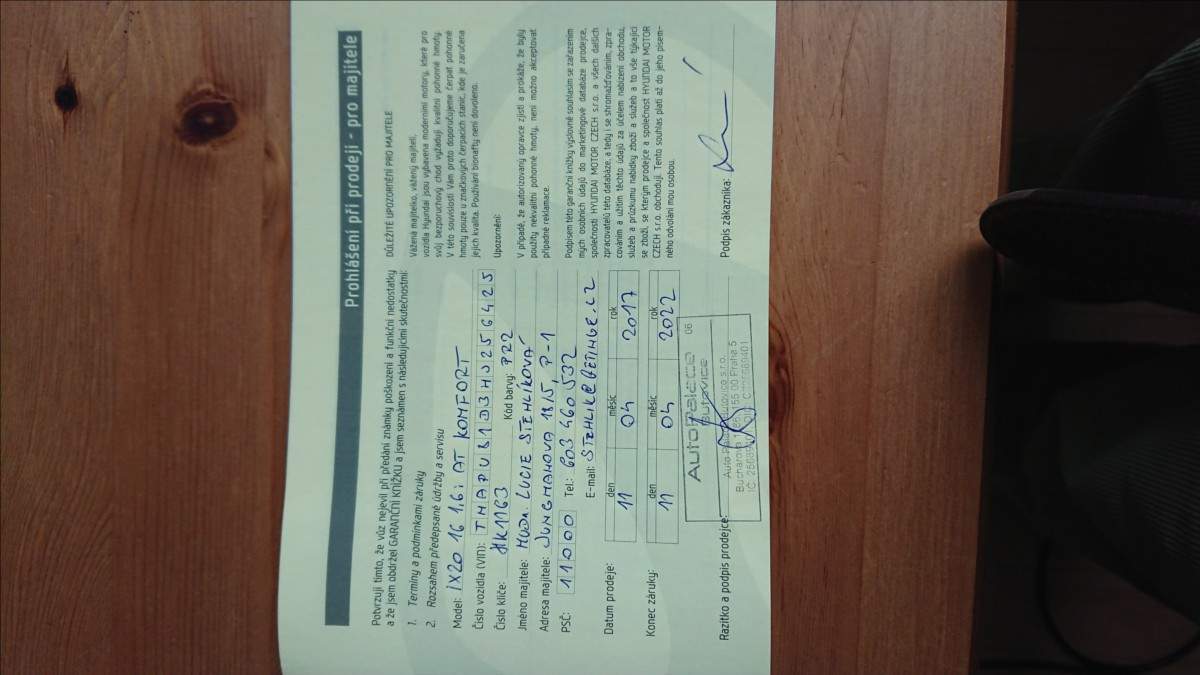 Prohlášení při prodeji - pro majitele
Potvrzuji tímto, že vůz nejevil při předání známky poškození a funkční nedostatky
a že jsem obdržel GARANČNÍ KNÍŽKU a jsem seznámen s následujícími skutečnostmi:
1. Termíny a podmínkami záruky
2. Rozsahem předepsané údržby a servisu
Model: IX20 16 1,6i AT KOMFORT
Číslo vozidla (VIN): TMAPU81DBHJ256425
Číslo klíče: HK1163 Kód barvy: PR2
Jméno majitele: MUDr. LUCIE STEHLÍKOVÁ
Adresa majitele: JUNGMANOVA 18/5, P-1
PSČ: 11000 Tel.: 603 460 532
E-mail: STEHLIK@GETINGE.CZ
den měsíc rok
Datum prodeje: 11 04 2017
den měsíc rok
Konec záruky: 11 04 2022
AutoPalace 06
Butovice
Auto Palace Butovice s.r.o.
Bucharova 155 00 Praha 5
Razítko a podpis prodejce:
DŮLEŽITÉ UPOZORNĚNÍ PRO MAJITELE
Vážená majitelko, vážený majiteli,
vozidla Hyundai jsou vybavena moderními motory, které pro
svůj bezporuchový chod vyžadují kvalitní pohonné hmoty.
V této souvislosti Vám proto doporučujeme čerpat pohonné
hmoty pouze u značkových čerpacích stanic, kde je zaručena
jejich kvalita. Používání bionafty není dovoleno.
Upozornění:
V případě, že autorizovaný opravce zjistí a prokáže, že byly
použity nekvalitní pohonné hmoty, není možno akceptovat
případné reklamace.
Podpisem této garanční knížky výslovně souhlasím se zařazením
mých osobních údajů do marketingové databáze prodejce,
společnosti HYUNDAI MOTOR CZECH s.r.o. a všech dalších
zpracovatelů této databáze, a tedy i se shromažďováním, zpra-
cováním a užitím těchto údajů za účelem nabízení obchodu,
služeb a průzkumu nabídky zboží a služeb a to vše týkající
se zboží, se kterým prodejce a společnost HYUNDAI MOTOR
CZECH s.r.o. obchodují. Tento souhlas platí až do jeho písem-
ného odvolání mou osobou.
Podpis zákazníka: